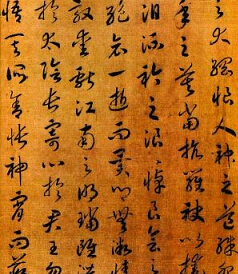 之大綱恨人神之道殊
年之莫當抗羅袂以掩
淚流衿之浪浪悼良會之
絕哀一逝而異鄉無微情
效愛獻江南之明璫雖潛
於太陰長寄心於君王忽
悟其所舍悵神宵而蔽